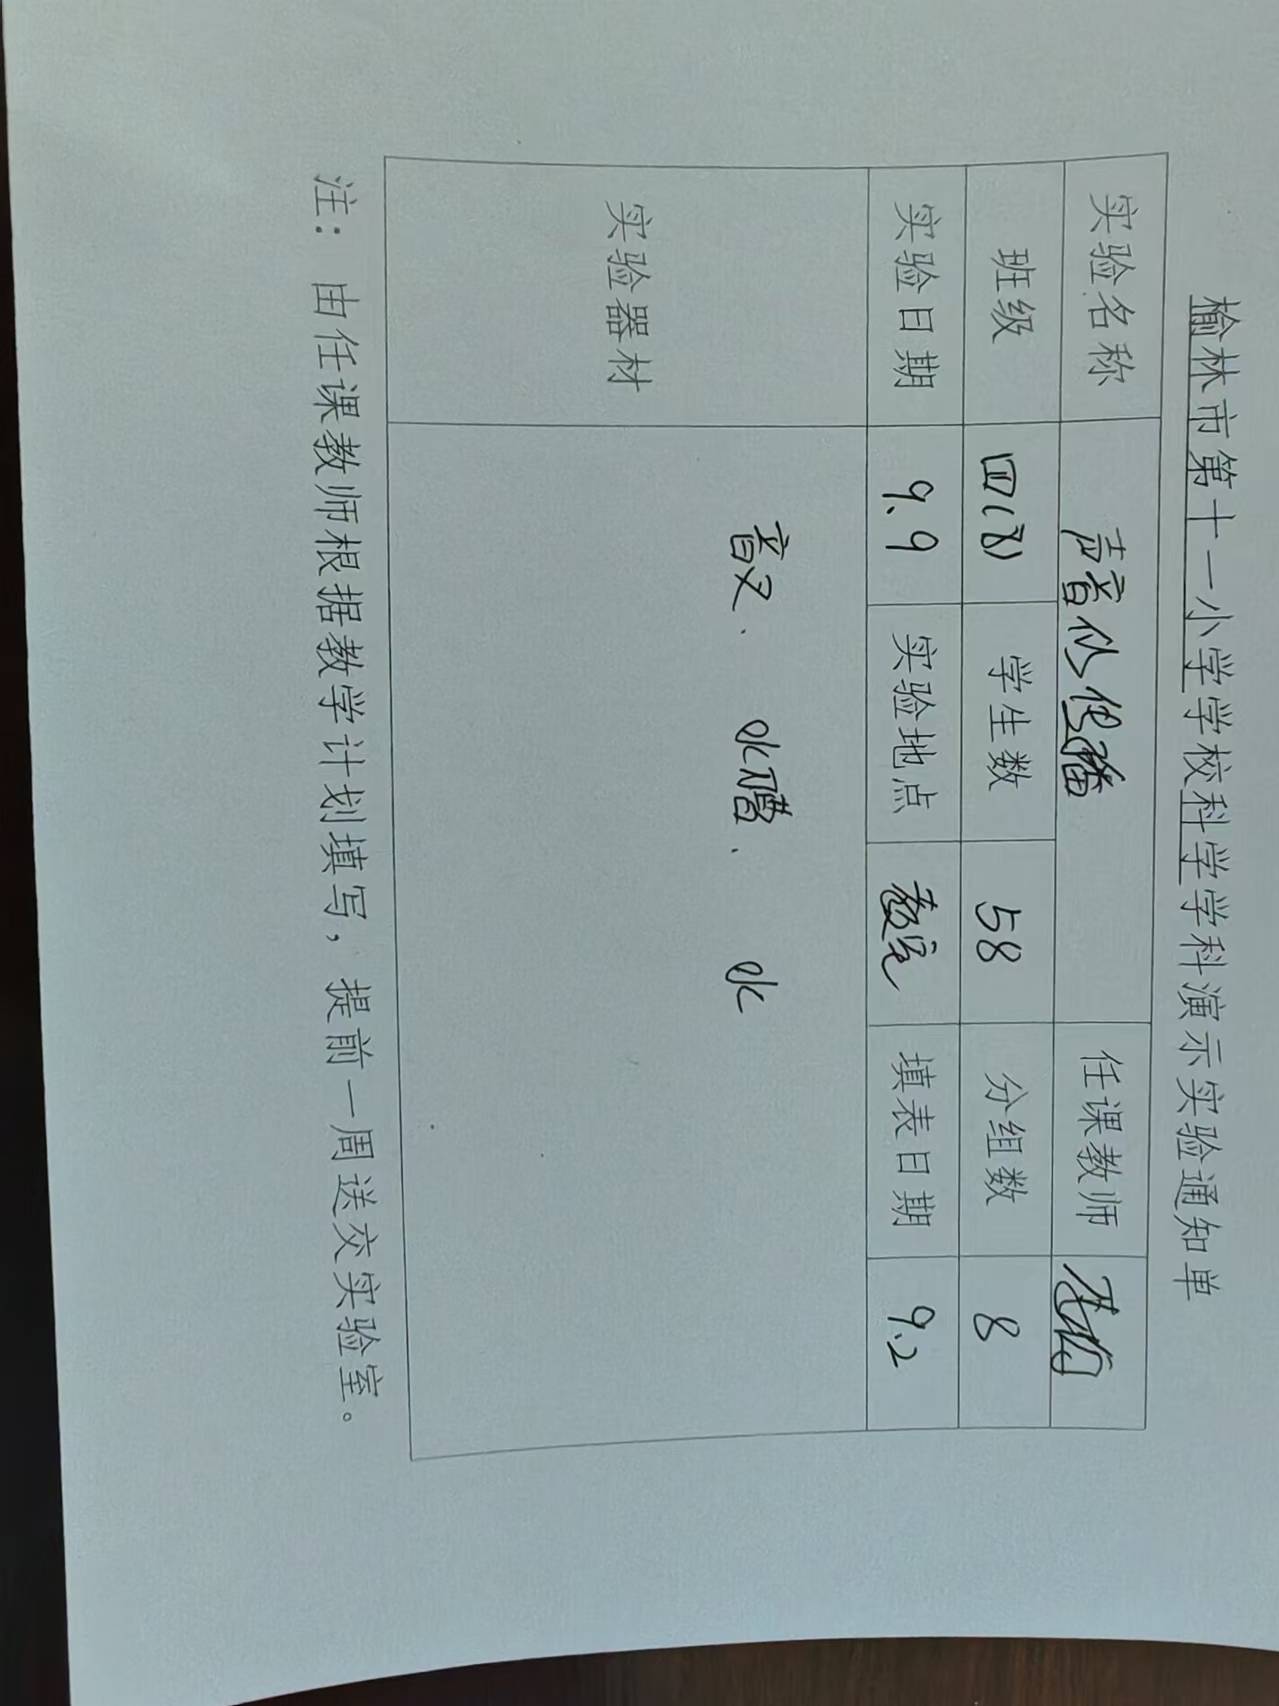 榆林市第十一小学学校科学学科演示实验通知单
实验名称 声音的传播 任课教师
班级 四(8) 学生数 58 分组数 8
实验日期 9.9 实验地点 教室 填表日期 9.2
实验器材 音叉. 水槽. 水
注：由任课教师根据教学计划填写，提前一周送交实验室。